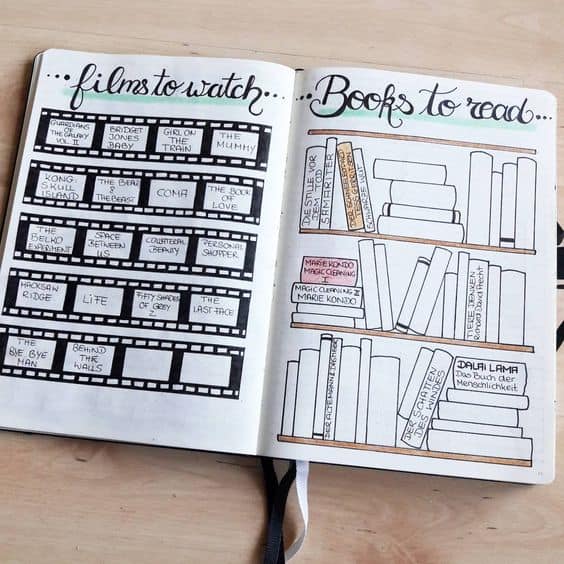 films to watch
GUARDIANS
OF THE
GALAXY
VOL. II
BRIDGET
JONES
BABY
GIRL ON
THE
TRAIN
THE
MUMMY
KONG-
SKULL
ISLAND
THE BEAR
& THE
BEAST
COMA
THE BOOK
OF
LOVE
THE
BELKO
EXPERIMENT
SPACE
BETWEEN
US
COLLATERAL
BEAUTY
PERSONAL
SHOPPER
HACKSAW
RIDGE
LIFE
FIFTY SHADES
OF GREY
2
THE
LAST FACE
THE
BYE BYE
MAN
BEHIND
THE
WALLS
Books to read
DIE STILLE VOR
DEM TOD
SAMARITER
MARIE KONDO
MAGIC CLEANING
I
MAGIC CLEANING II
MARIE KONDO
TIERE DENKEN
Richard David Precht
DER ALTE MANN
DER SCHATTEN
DES WINDES
DALAI LAMA
Das Buch der
Menschlichkeit